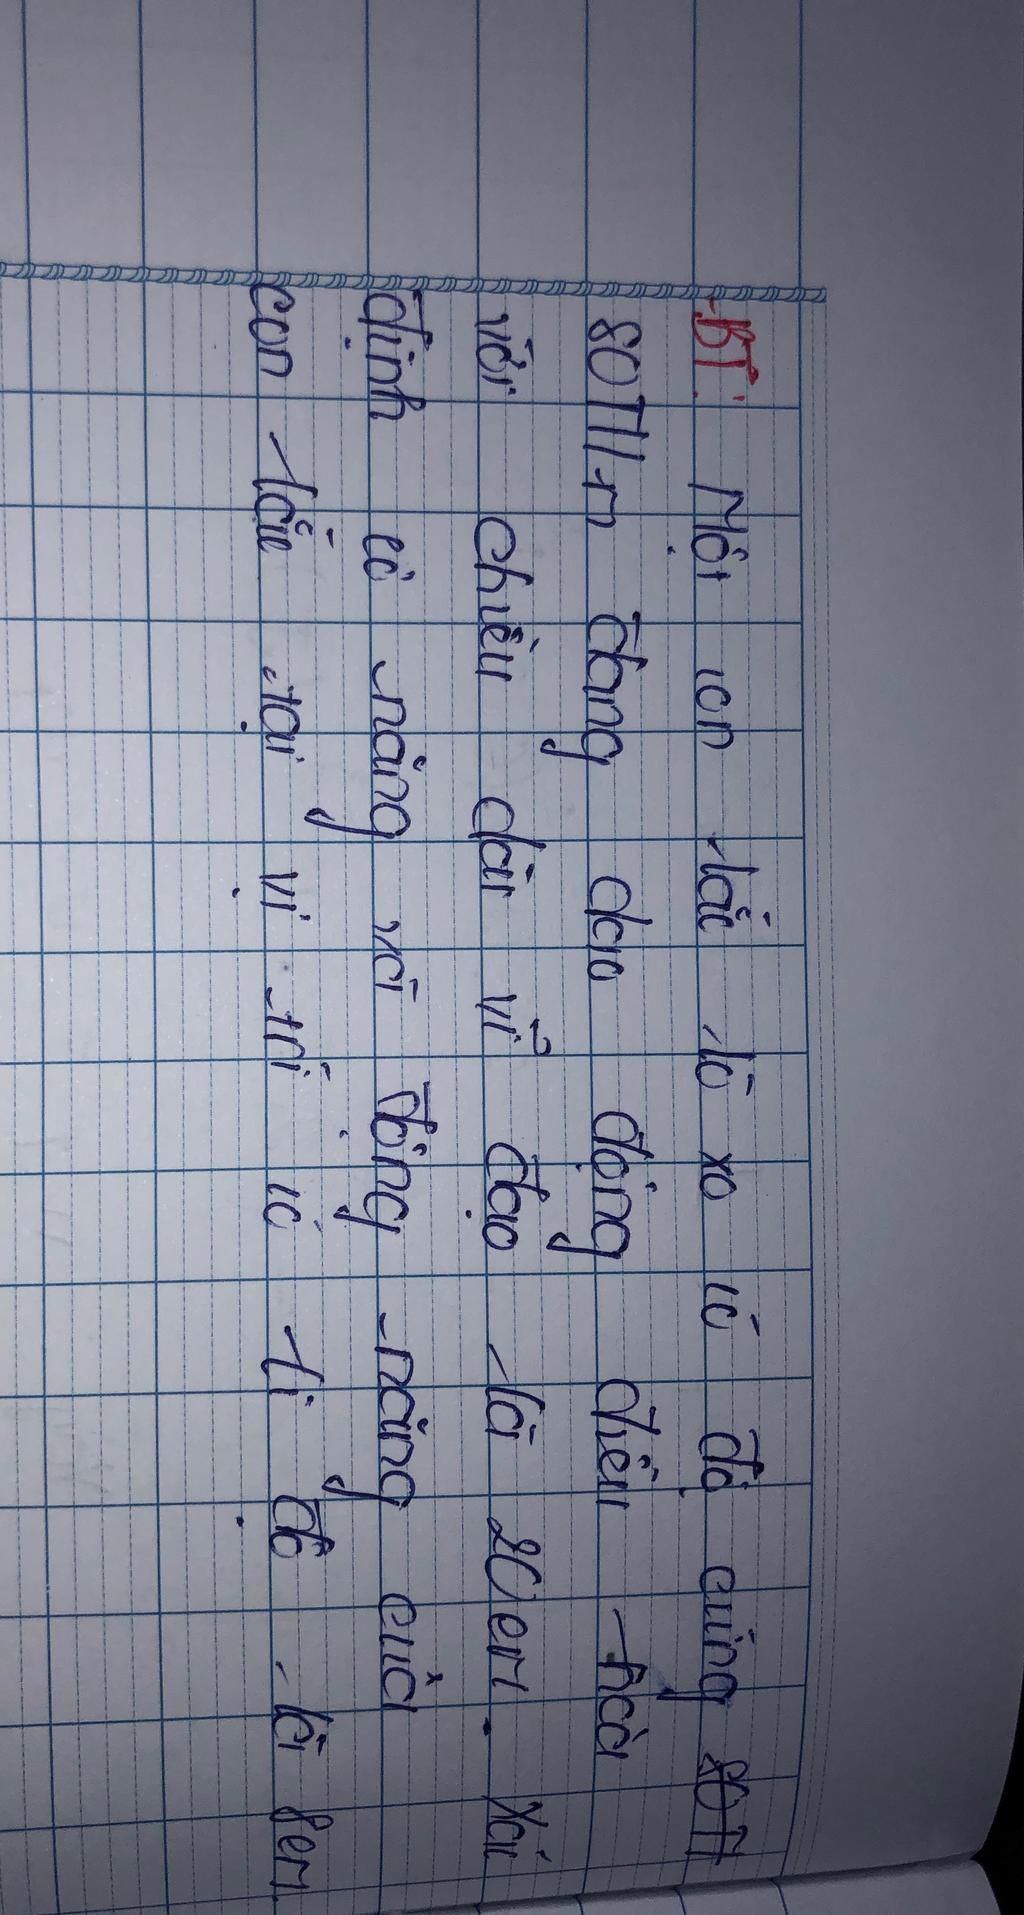 -BT: Một con lắc lò xo có độ cứng
80N/m đang dao động điều hòa
với chiều dài vĩ đạo là 20cm. Xác
định cơ năng và động năng của
con lắc tại vị trí có li độ là 8cm.